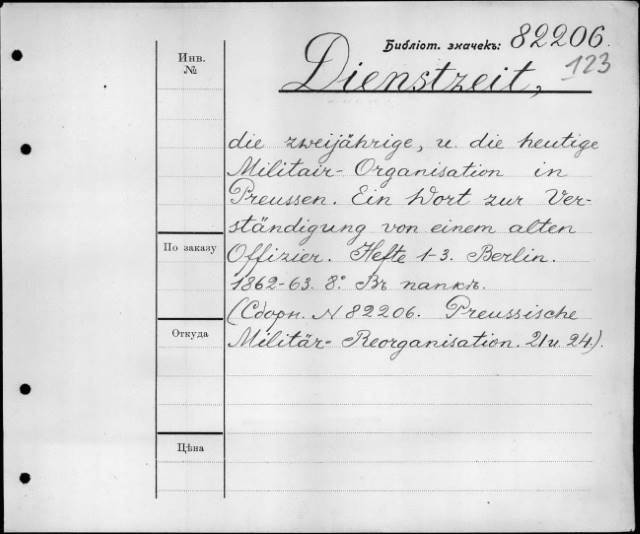 Библіот. значекъ: 82206.
123
Инв.
№
Dienstzeit,
die zweijährige, u. die heutige
Militair-Organisation in
Preussen. Ein Wort zur Ver-
ständigung von einem alten
По заказу
Offizier. Hefte 1-3. Berlin.
1862-63. 8º. Въ папкѣ.
(Сборн. N 82206. Preussische
Откуда
Militär-Reorganisation. 21 u. 24.).
Цѣна